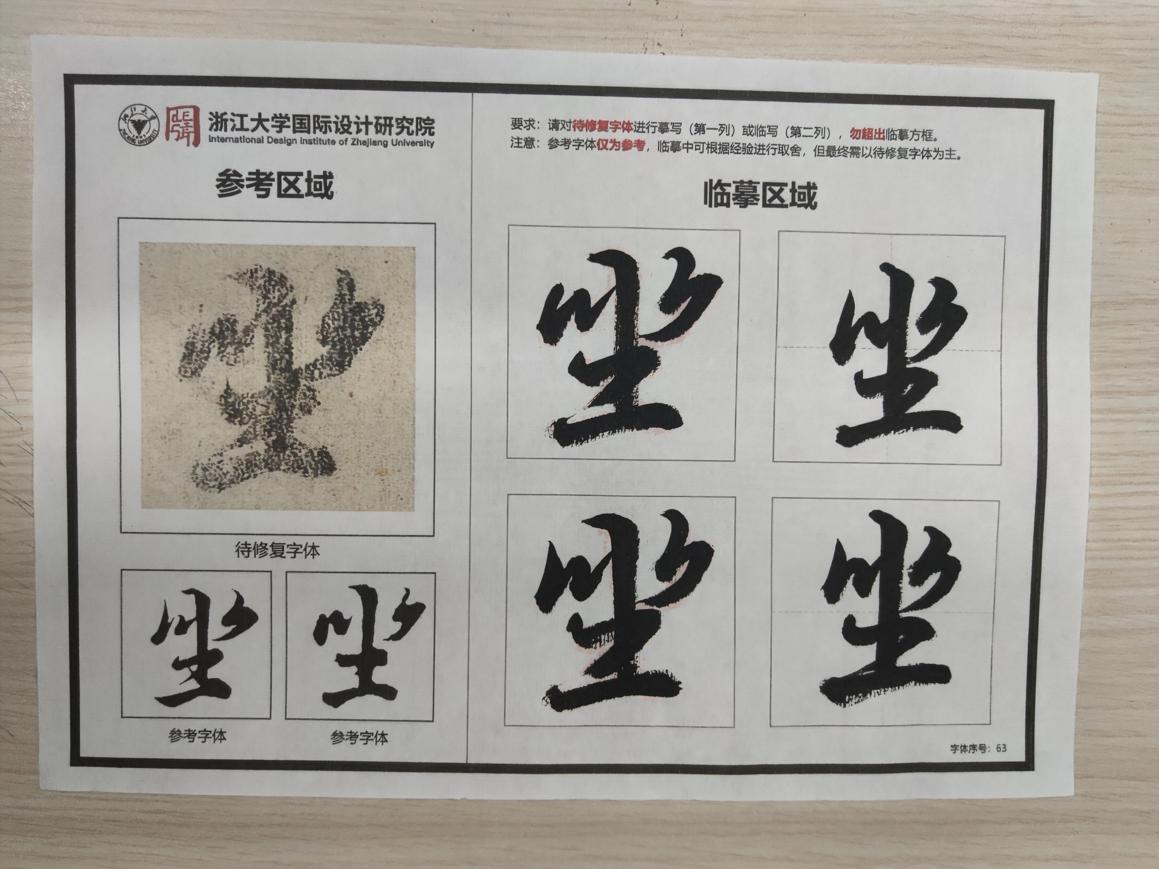 浙江大学国际设计研究院
International Design Institute of Zhejiang University
参考区域
坐
待修复字体
坐
坐
参考字体
参考字体
要求：请对待修复字体进行摹写（第一列）或临写（第二列），勿超出临摹方框。
注意：参考字体仅为参考，临摹中可根据经验进行取舍，但最终需以待修复字体为主。
临摹区域
坐
坐
坐
坐
字体序号：63